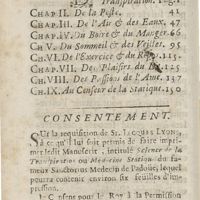 Transpiration. Pag. 1
CHAP. II. De la Peste. 41
CHAP. III. De l'Air & des Eaux. 47
CHAP. IV. Du Boire & du Manger. 66
CH. V. Du Sommeil & des Veilles. 95
CH. VI. De l'Exercice & du Repos.
CH. VII. Des Plaisirs du 125
CH. VIII. Des Passions de l'Ame. 137
CH. IX. Au Censeur de la Statique. 150
CONSENTEMENT.
Sur la requisition de Sr. Jacques Lyons,
à ce qu'il lui soit permis de faire imprimer
ledit Manuscrit, intitulé Science de la
Transpiration ou Medecine Statique du fameux
Sanctorius Medecin de Padoüe, lequel
pourra contenir environ six feuilles
Je Consens pour le Roy à la Permission